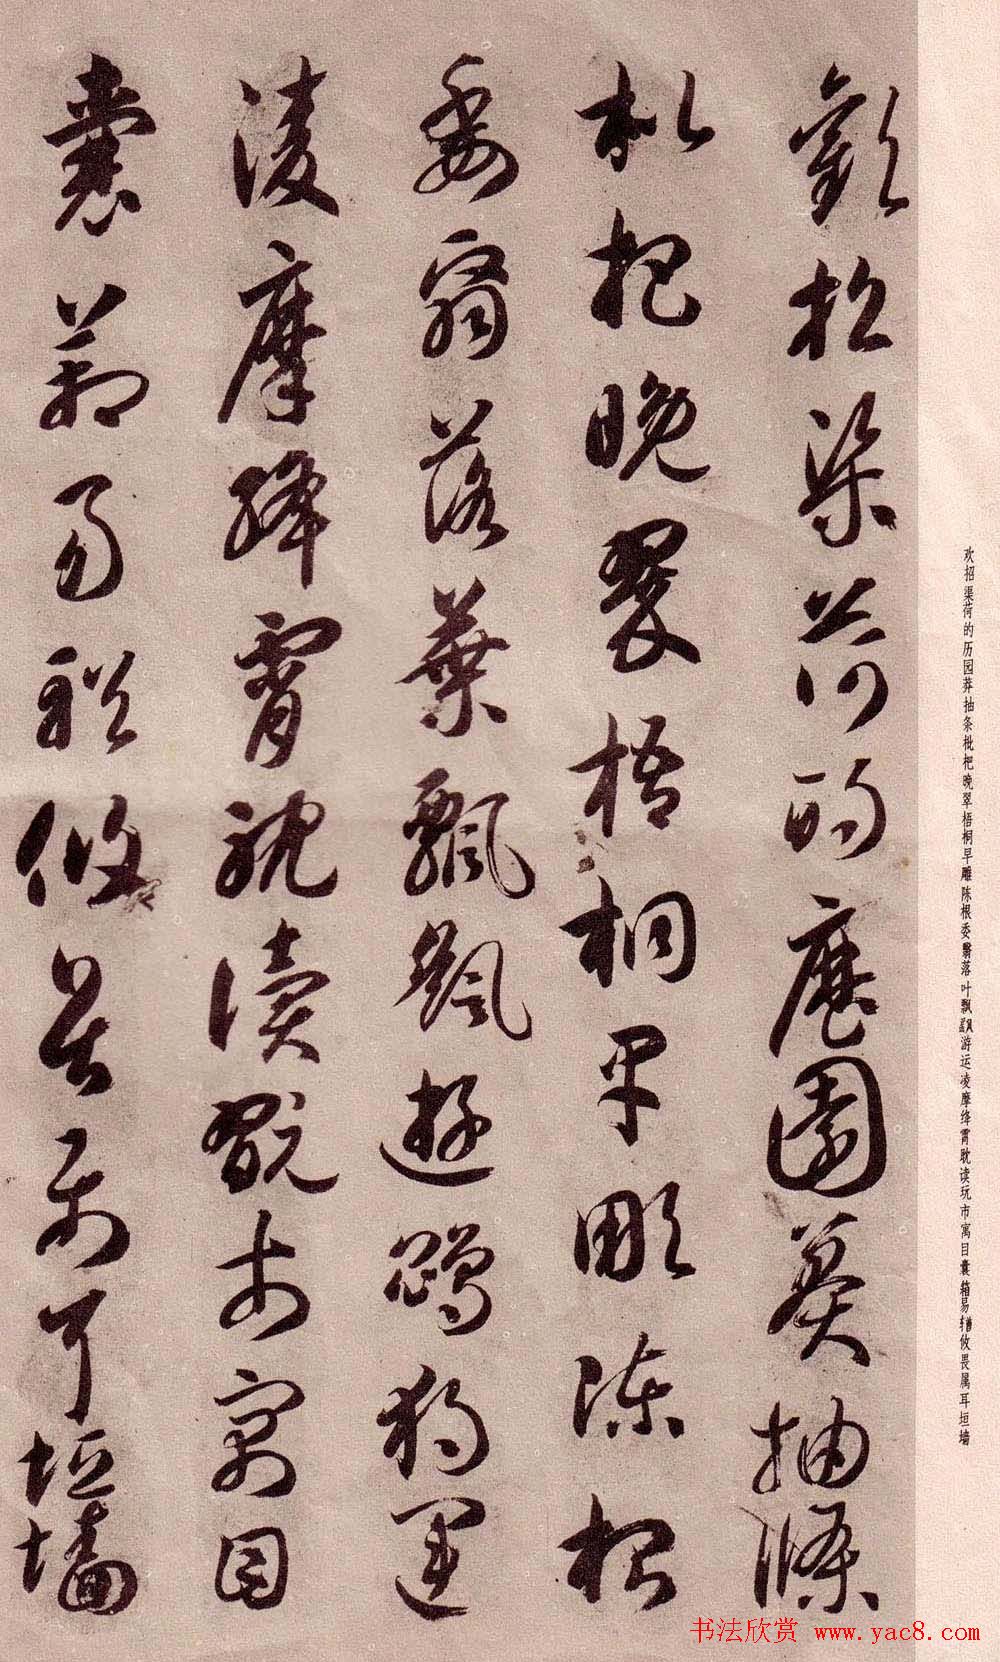 歡招渠荷的歷園莽抽條
枇杷晚翠梧桐早彫陳根
委翳落葉飄颻遊鵾獨運
凌摩絳霄耽讀翫市寓目
囊箱易輶攸畏屬耳垣墻
欢招渠荷的历园莽抽条枇杷晚翠梧桐早雕陈根委翳落叶飘飖游运凌摩绛霄耽读玩市寓目囊箱易輶攸畏属耳垣墙
书法欣赏 www.yac8.com